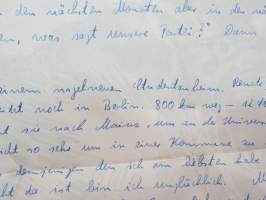 den nächsten Monaten aber in den nä
en, was sagt unsere Partei?" Dann
einem nagelneuen Studentenheim. Renate
eitet noch in Berlin. 800 km weg
t sie nach Mainz, um an der Univers
icht so sehr um in einer Kommune zu
demjenigen den ich am liebsten habe
ht da ist bin ich unglücklich. M